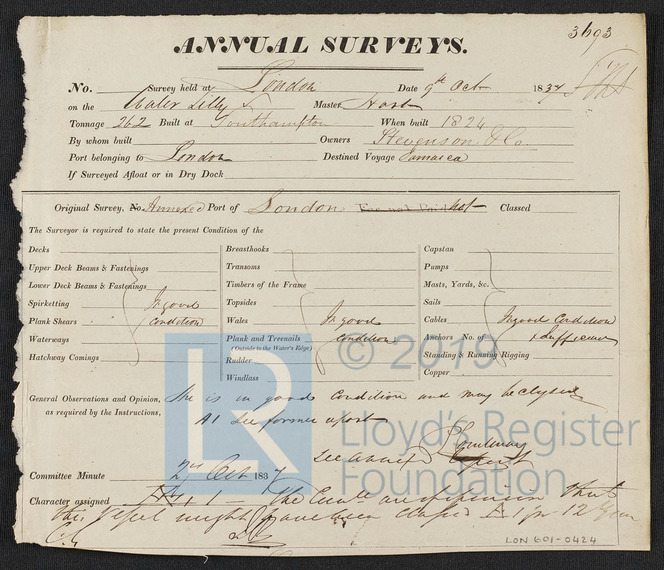 3693
ANNUAL SURVEYS.
No. Survey held at London Date 9th Oct 1834
on the Water Lilly Master Hart
Tonnage 262 Built at Southampton When built 1824
By whom built Owners Stevenson & Co
Port belonging to London Destined Voyage Jamaica
If Surveyed Afloat or in Dry Dock
Original Survey, No. Annexed Port of London Fee not Paid not Classed
The Surveyor is required to state the present Condition of the
Decks
Upper Deck Beams & Fastenings
Lower Deck Beams & Fastenings
Spirketting
Plank Shears
Waterways
Hatchway Comings
In good condition
Breasthooks
Transoms
Timbers of the Frame
Topsides
Wales
Plank and Treenails
(Outside to the Water's Edge)
Rudder
Windlass
In good condition
Capstan
Pumps
Masts, Yards, &c.
Sails
Cables
Anchors No. of
Standing & Running Rigging
Copper
In good Condition
& sufficient
General Observations and Opinion, She is in good condition and may be
as required by the Instructions, A1 See former report
See annexed
Committee Minute Oct 1837
Character assigned 1 - The Committee that
this Vessel might have been classed 1 for 12 Years
LON 601-0424
© 2019
LR
Lloyd's Register
Foundation